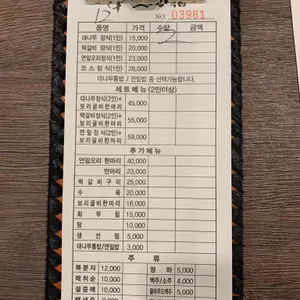 12
NO. 03981
품명 가격 수량 금액
대나무 정식(1인) 15,000 2
떡갈비 정식(1인) 21,000
연잎오리정식(1인) 23,000
코스정식(1인) 28,000
대나무통밥 / 연잎밥 중 선택가능합니다.
세트메뉴 (2인이상)
대나무정식(2인)+
보리굴비한마리 45,000
떡갈비정식(2인)+
보리굴비한마리 55,000
연잎정식(2인)+
보리굴비한마리 59,000
추가메뉴
연잎오리 한마리 40,000
한마리 23,000
떡갈비구이 25,000
수육 20,000
보리굴비한마리 16,000
회무침 15,000
탕 10,000
생선찜 5,000
대나무통밥/연잎밥 3,000
주류
복분자 12,000 청하 5,000
매취순 10,000 맥주/소주 4,000
설중매 10,000 클라우드맥주 5,000